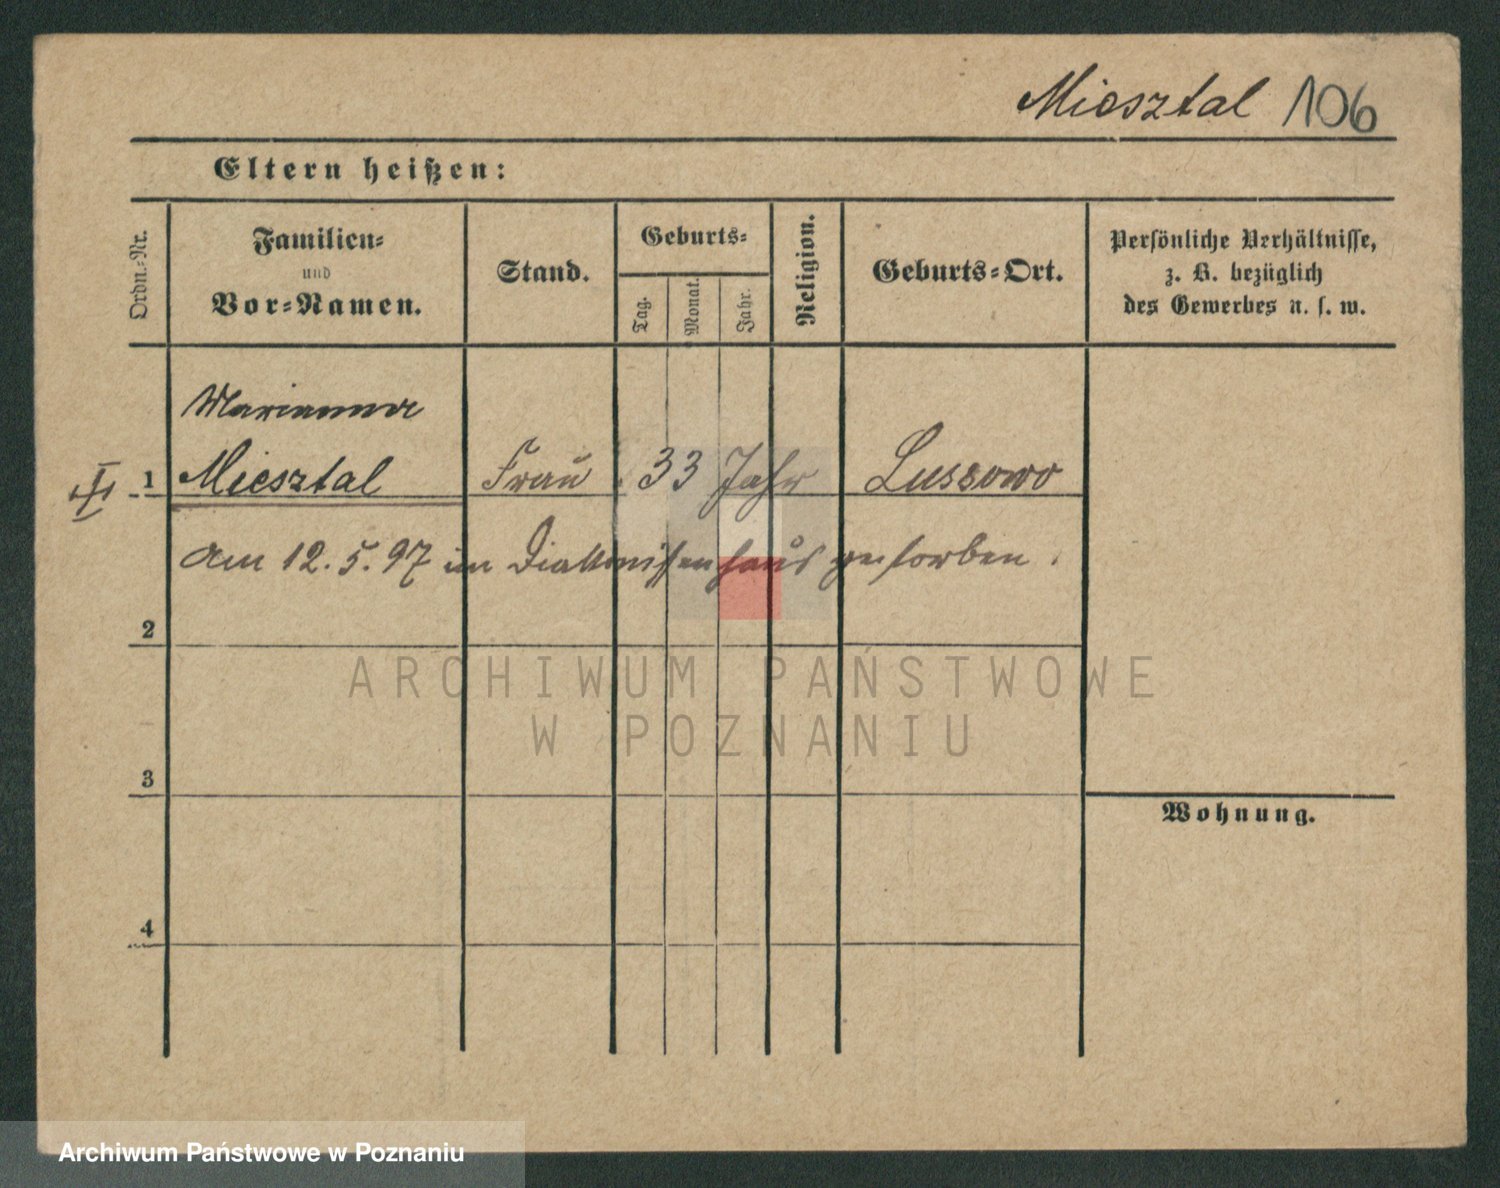 Miesztal 106
Eltern heißen:
Ordn.-Nr.
Familien-
und
Vor-Namen.
Stand.
Geburts-
Tag.
Monat.
Jahr.
Religion.
Geburts-Ort.
Persönliche Verhältnisse,
z. B. bezüglich
des Gewerbes u. s. w.
Marianna
1 Miesztal Frau 33 Jahr Lussowo
am 12. 5. 97 im Diakonissenhaus gestorben.
2
ARCHIWUM PAŃSTWOWE
W POZNANIU
3
Wohnung.
4
Archiwum Państwowe w Poznaniu